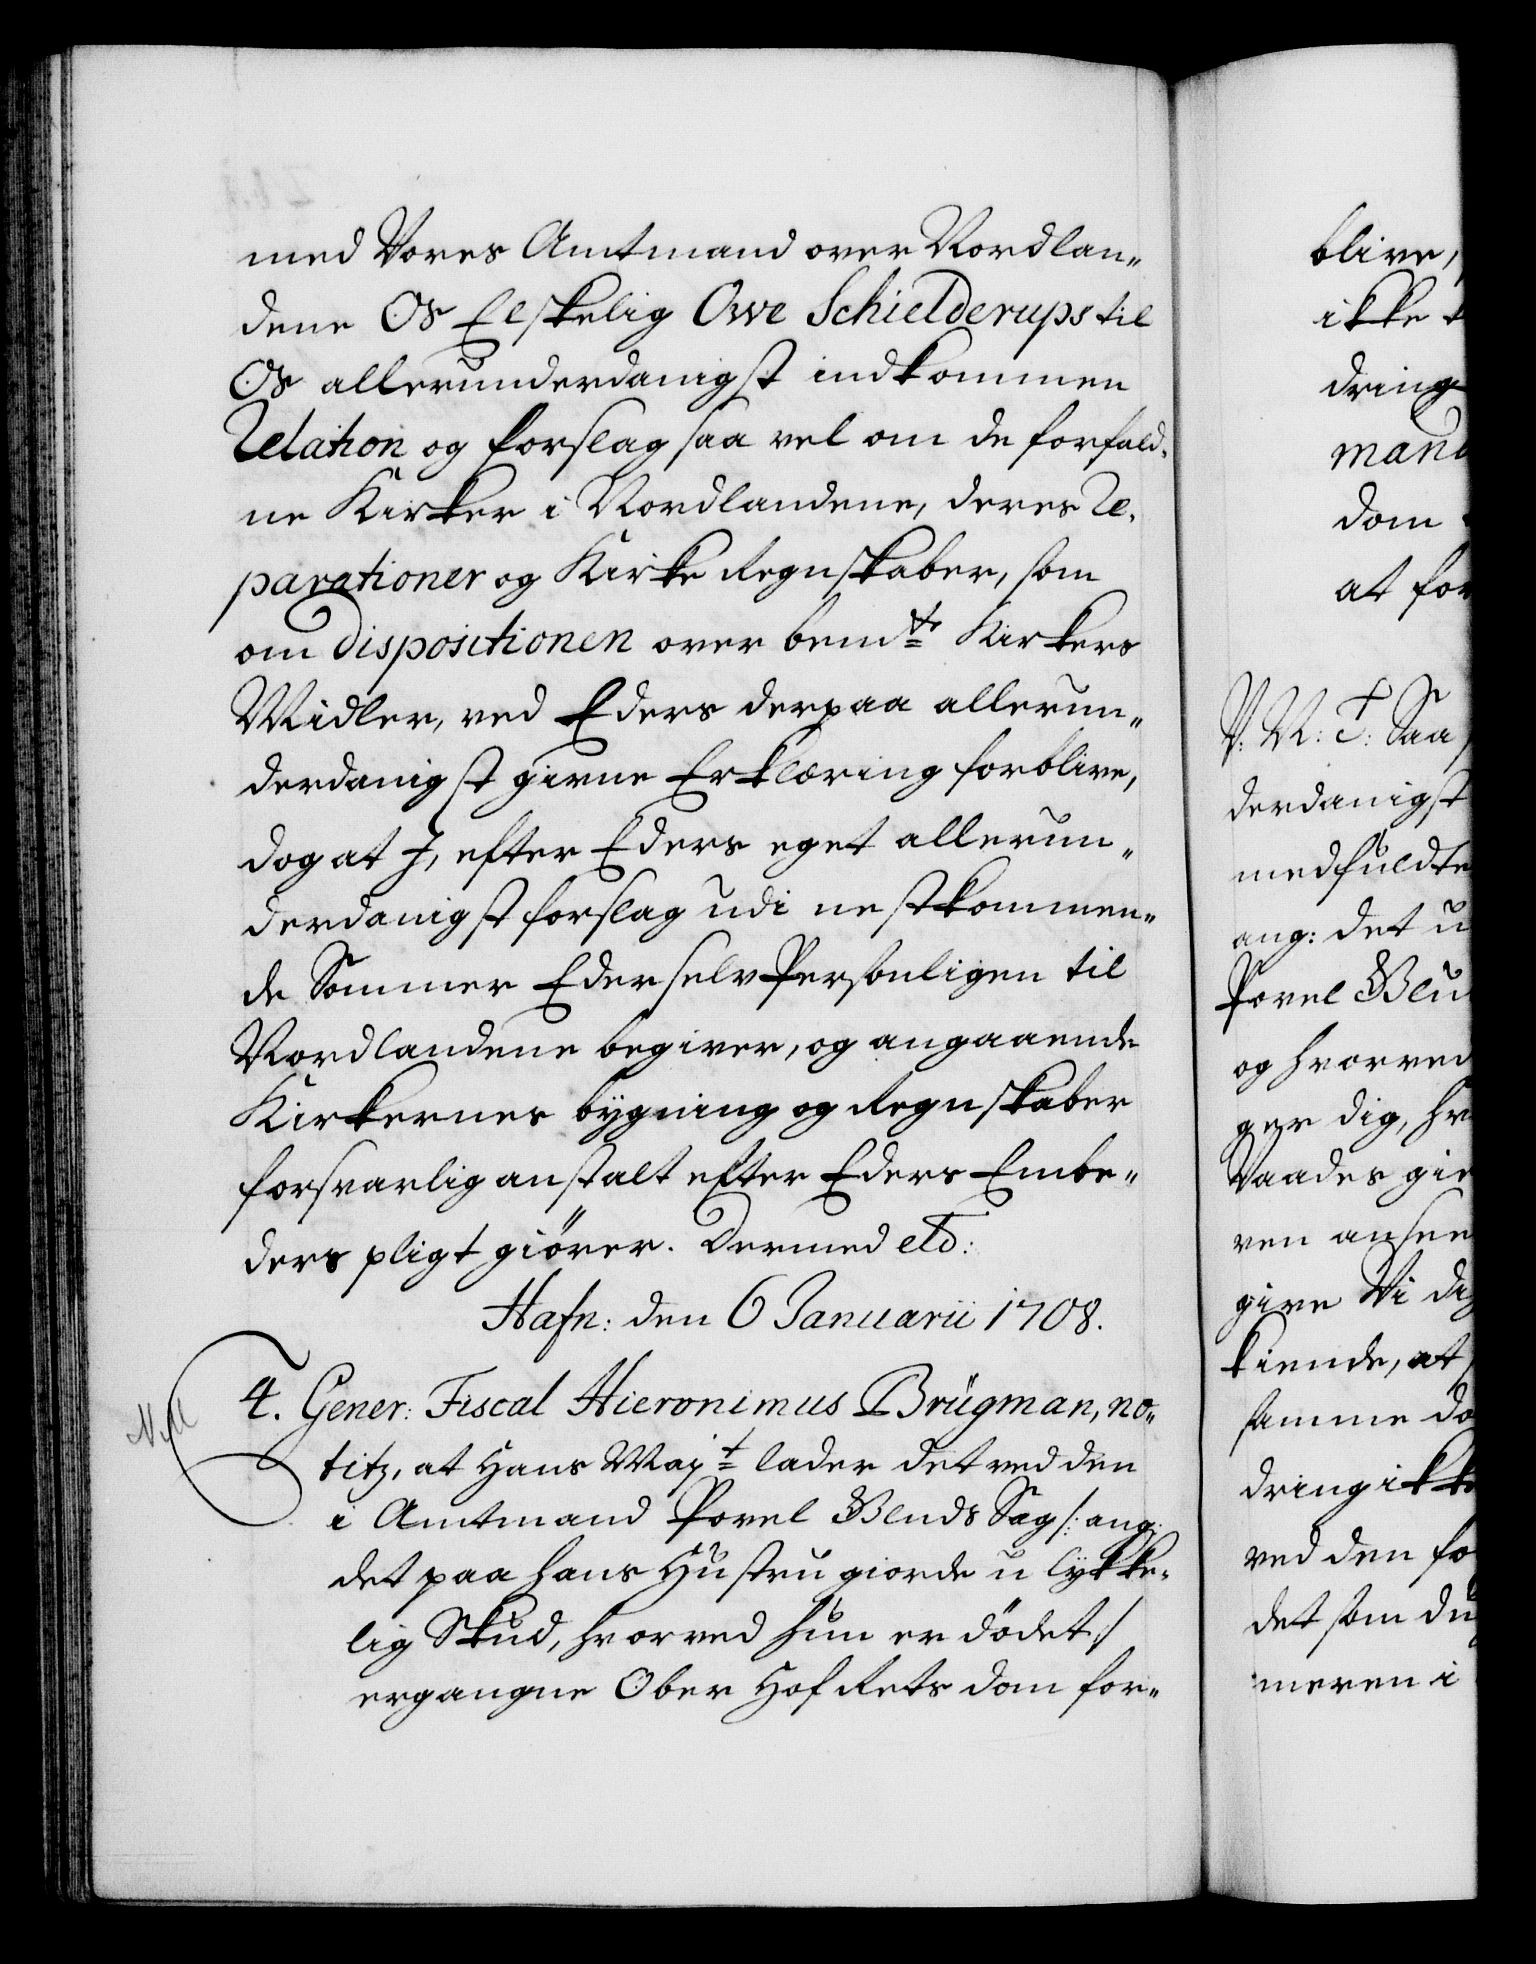 med Vores Amtmand over Nordlan„
dene Os Elskelig Owe Schielderups til
Os allerunderdanigst indkommen
Relation og forslag saa vel om de forfald„
ne Kirker i Nordlandene, deres Re„
parationer og Kirke Regnskaber, som
om Dispositionen over bemte Kirkers
Midler, ved Eders derpaa allerun„
derdanigst givne Erklæring forblive,
dog at J, efter Eders eget allerun„
derdanigst forslag udi nestkommen„
de Sommer Eder selv Personligen til
Nordlandene begiver, og angaaende
Kirkernes bygning og Regnskaber
forsvarlig anstalt efter Eders Embe„
ders pligt giörer. Dermed etc:
Hafn: den 6 Januarii 1708.
4. Gener: Fiscal Hieronimus Brügman, no„
titz, at Hans Majt lader det ved den
i Amtmand Povel Bluds Sag /: ang:
det paa hans Hustru giorde u lykke„
lig Skud, hvorved hun er dödet :/
ergangne Ober Hof Rets dom for„
blive,
ikke
dring
mand
dom
at for
V: N: T: Saa
derdanigst
medfuldte
ang: det u
Povel Blu
og hvorved
ger dig, hv
Vaades gie
ven ansee
give Vi dig
kiende, at
samme do
dring ikke
ved den fo
det som du
meren i